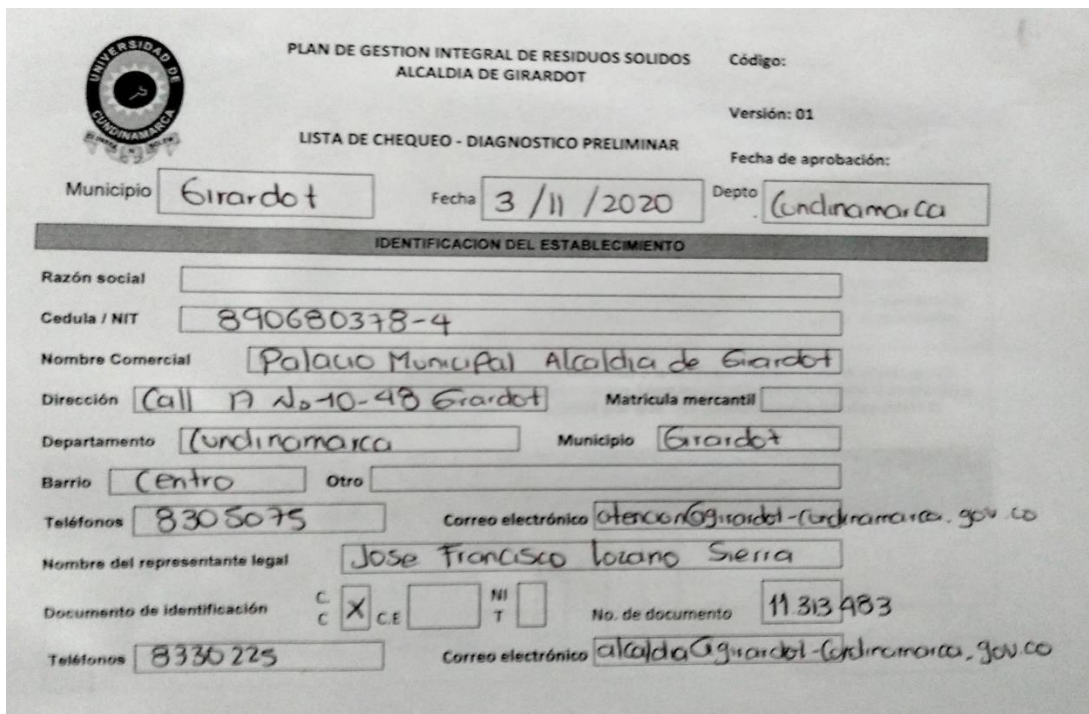 UNIVERSIDAD DE CUNDINAMARCA
PLAN DE GESTION INTEGRAL DE RESIDUOS SOLIDOS
ALCALDIA DE GIRARDOT
Código:
Versión: 01
LISTA DE CHEQUEO - DIAGNOSTICO PRELIMINAR
Fecha de aprobación:
Municipio Girardot Fecha 3/11/2020 Depto Cundinamarca
IDENTIFICACION DEL ESTABLECIMIENTO
Razón social
Cedula / NIT 890680378-4
Nombre Comercial Palacio Municipal Alcaldia de Girardot
Dirección Call 17 No-10-48 Girardot Matricula mercantil
Departamento Cundinamarca Municipio Girardot
Barrio Centro Otro
Teléfonos 8305075 Correo electrónico atencion@girardot-cundinamarca.gov.co
Nombre del representante legal Jose Francisco Lozano Sierra
Documento de identificación C C X C.E NI T No. de documento 11.313.483
Teléfonos 8330225 Correo electrónico alcaldia@girardot-Cundinamarca.gov.co